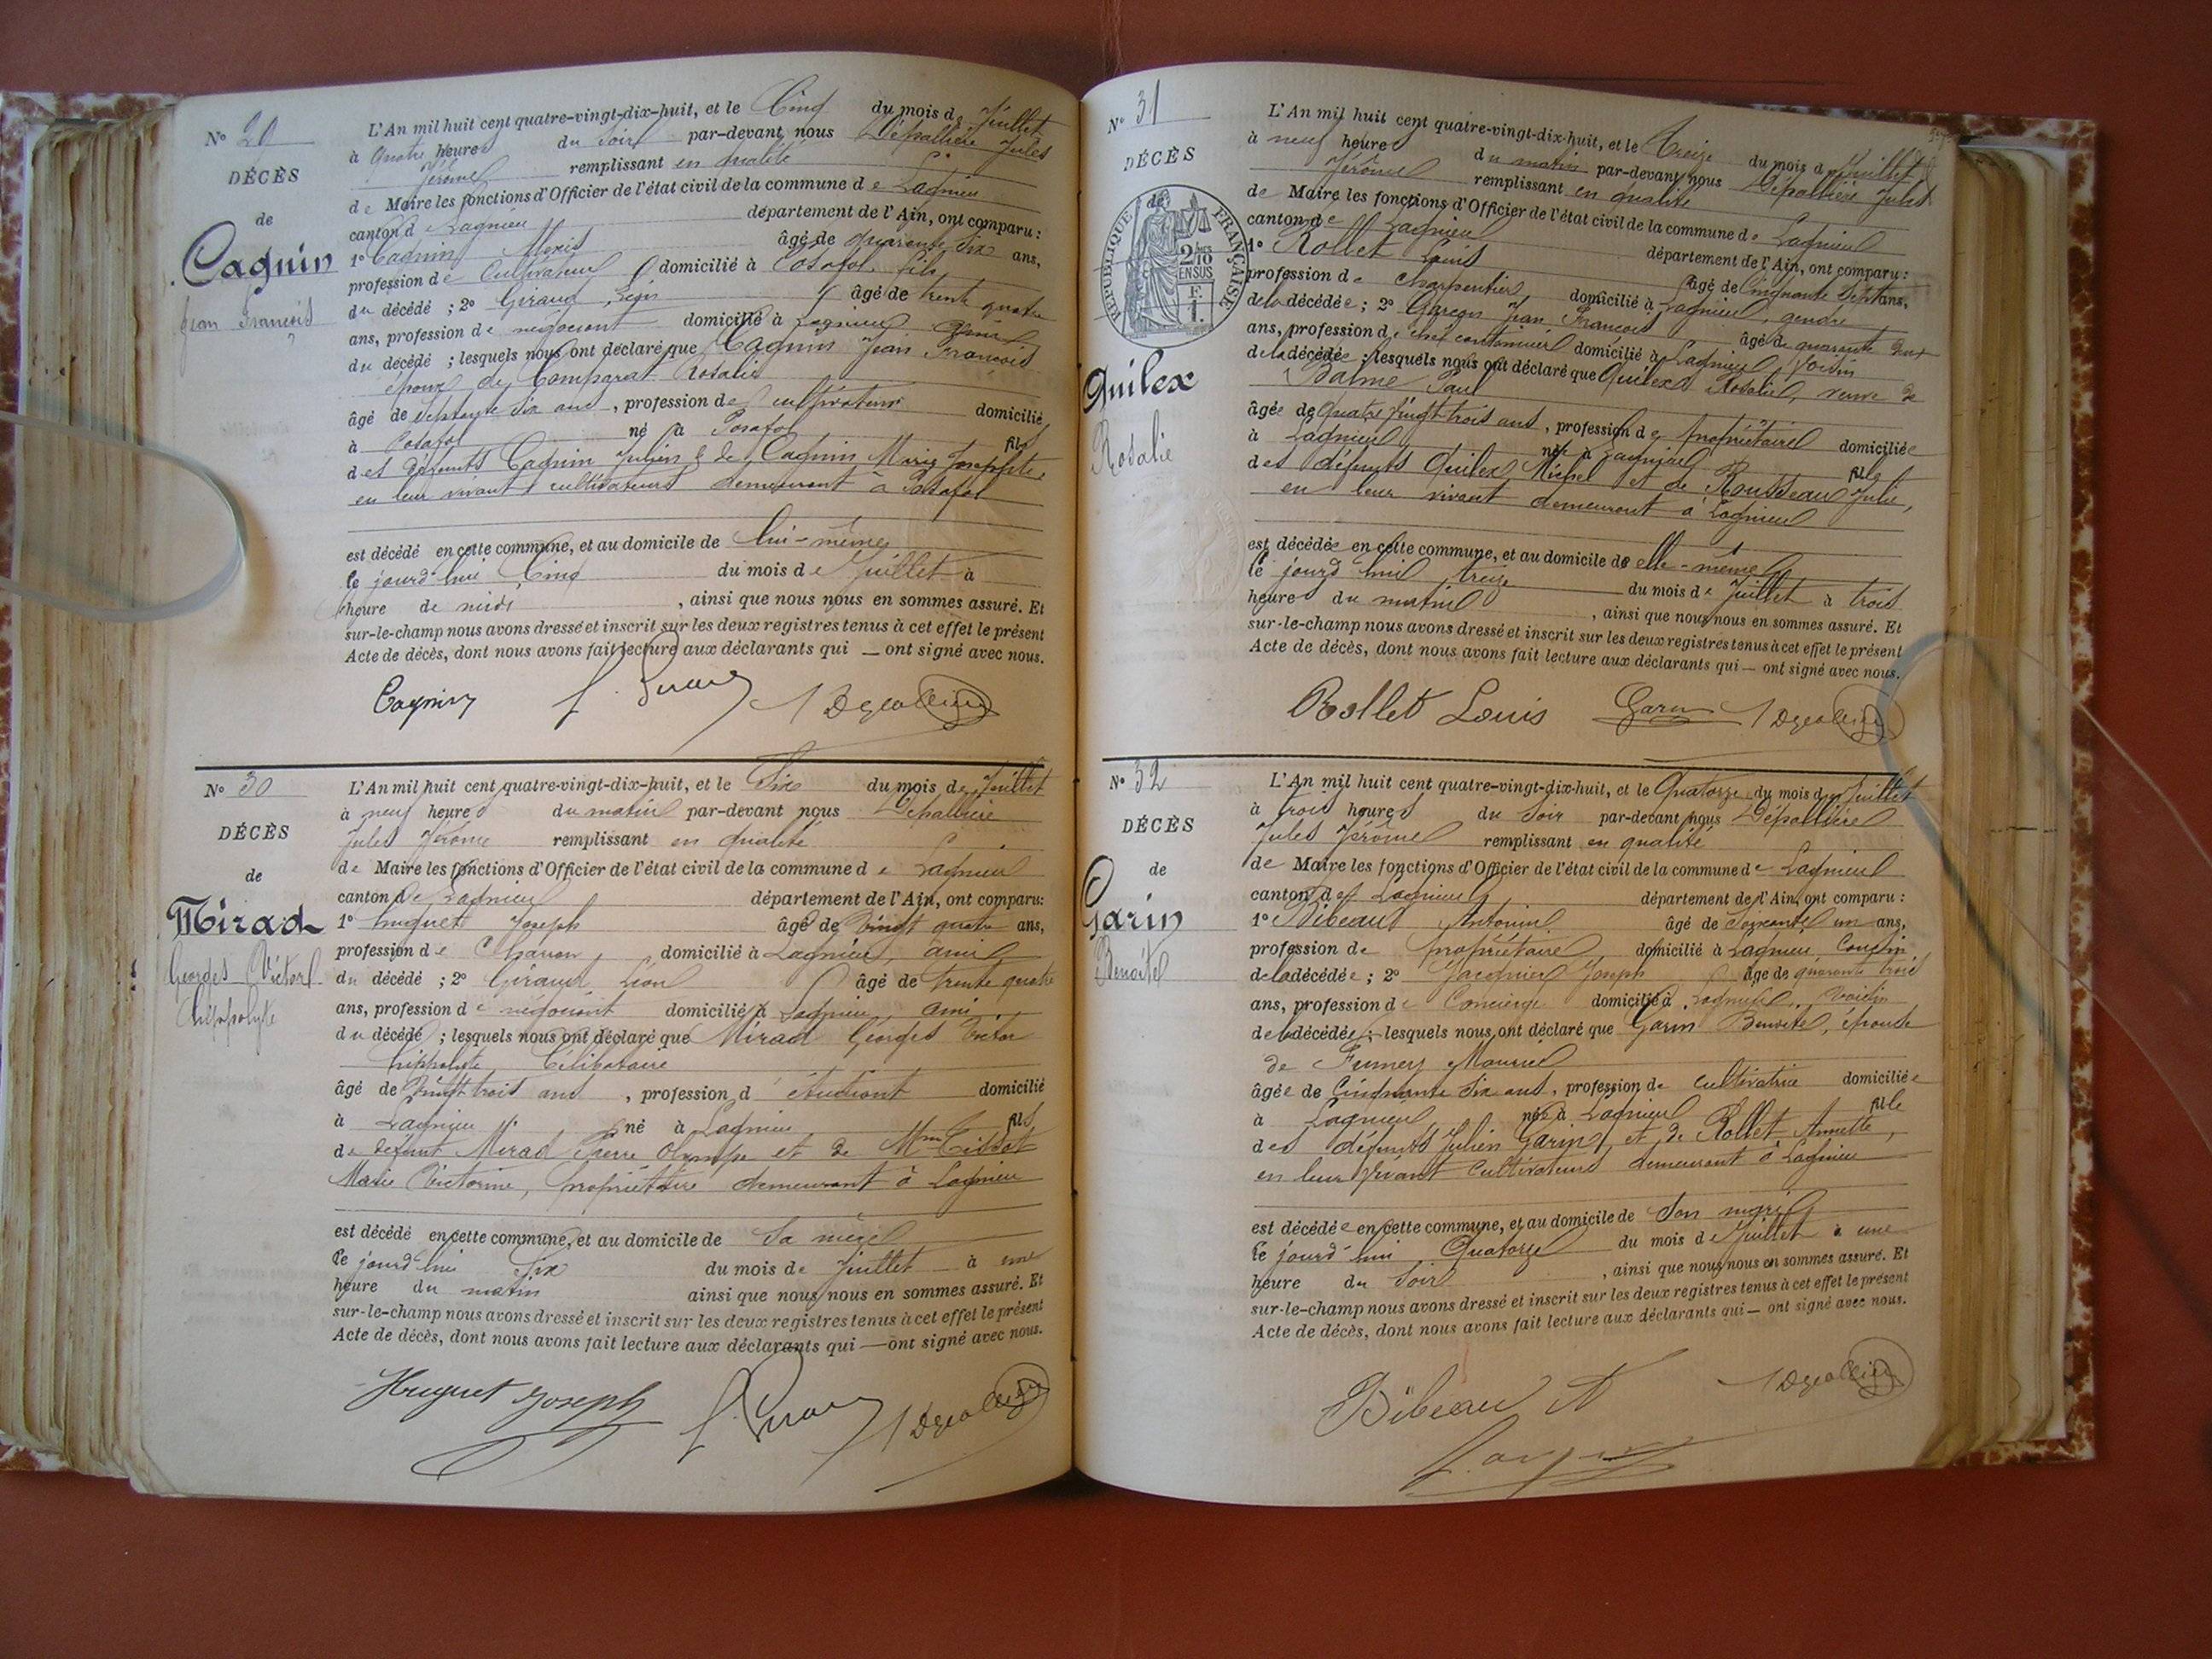 N° 20
DÉCÈS
de
Cagnin
Jean François
L'An mil huit cent quatre-vingt-dix-huit, et le Cinq du mois de Juillet
à quatre heures du soir par-devant nous Dépallière Jules
Jérôme remplissant en qualité
de Maire les fonctions d'Officier de l'état civil de la commune de Lagnieu
canton de Lagnieu département de l'Ain, ont comparu :
1° Cagnin Alexis âgé de quarante six ans,
profession de Cultivateur domicilié à Posafol, fils
du décédé ; 2° Giraud Léon âgé de trente quatre
ans, profession de négociant domicilié à Lagnieu
du décédé ; lesquels nous ont déclaré que Cagnin Jean François
époux de Comparat Rosalie
âgé de septante six ans, profession de cultivateur domicilié
à Posafol né à Posafol fils
des défunts Cagnin Julien & de Cagnin Marie Josephte,
en leur vivant cultivateurs demeurant à Posafol
est décédé en cette commune, et au domicile de lui-même
le jourd'hui Cinq du mois de Juillet à
heure de midi, ainsi que nous nous en sommes assuré. Et
sur-le-champ nous avons dressé et inscrit sur les deux registres tenus à cet effet le présent
Acte de décès, dont nous avons fait lecture aux déclarants qui — ont signé avec nous.
Cagnin
N° 30
DÉCÈS
de
Mirad
Georges Victor
Hippolyte
L'An mil huit cent quatre-vingt-dix-huit, et le Six du mois de Juillet
à neuf heures du matin par-devant nous Dépallière
Jules Jérôme remplissant en qualité
de Maire les fonctions d'Officier de l'état civil de la commune de Lagnieu
canton de Lagnieu département de l'Ain, ont comparu:
1° huguet Joseph âgé de Vingt quatre ans,
profession de Charron, domicilié à Lagnieu, ami
du décédé ; 2° Giraud Léon âgé de trente quatre
ans, profession de négociant domicilié à Lagnieu, ami
du décédé ; lesquels nous ont déclaré que Mirad Georges Victor
hippolyte Célibataire
âgé de Vingt trois ans, profession d'étudiant domicilié
à Lagnieu né à Lagnieu fils
de défunt Mirad Pierre Olympe et de Mme Tissot
Marie Victorine, propriétaire demeurant à Lagnieu
est décédé en cette commune, et au domicile de Sa mère
le jourd'hui Six du mois de Juillet à une
heure du matin ainsi que nous nous en sommes assuré. Et
sur-le-champ nous avons dressé et inscrit sur les deux registres tenus à cet effet le présent
Acte de décès, dont nous avons fait lecture aux déclarants qui — ont signé avec nous.
Huguet Joseph
N° 31
DÉCÈS
de
RÉPUBLIQUE FRANÇAISE
2/10
EN SUS
F.
1.
Quilex
Rosalie
L'An mil huit cent quatre-vingt-dix-huit, et le Treize du mois de Juillet
à neuf heures du matin par-devant nous Dépallière Jules
Jérôme remplissant en qualité
de Maire les fonctions d'Officier de l'état civil de la commune de Lagnieu
canton de Lagnieu département de l'Ain, ont comparu :
1° Rollet Louis âgé de Cinquante Sept ans,
profession de Charpentier domicilié à Lagnieu, gendre
de la décédée ; 2° Garçon Jean François âgé de quarante
ans, profession de chef cantonnier domicilié à Lagnieu, Voisin
de la décédée ; lesquels nous ont déclaré que Quilex Rosalie, veuve de
Balme Paul
âgée de Quatre Vingt-trois ans, profession de propriétaire domiciliée
à Lagnieu née à Lagnieu fille
des défunts Quilex Michel et de Rousseau Julie,
en leur vivant demeurant à Lagnieu
est décédée en cette commune, et au domicile de elle-même
le jourd'hui treize du mois de Juillet à trois
heures du matin, ainsi que nous nous en sommes assuré. Et
sur-le-champ nous avons dressé et inscrit sur les deux registres tenus à cet effet le présent
Acte de décès, dont nous avons fait lecture aux déclarants qui — ont signé avec nous.
Rollet Louis
N° 32
DÉCÈS
de
Garin
Benoîte
L'An mil huit cent quatre-vingt-dix-huit, et le Quatorze du mois de Juillet
à trois heures du Soir par-devant nous Dépallière
Jules Jérôme remplissant en qualité
de Maire les fonctions d'Officier de l'état civil de la commune de Lagnieu
canton de Lagnieu département de l'Ain, ont comparu :
1° Bibeaud Antonin âgé de Soixante un ans,
profession de propriétaire domicilié à Lagnieu, Cousin
de la décédée ; 2° Jacquier Joseph âgé de quarante trois
ans, profession de Concierge domicilié à Lagnieu, Voisin
de la décédée ; lesquels nous ont déclaré que Garin Benoîte, épouse
de
âgée de Cinquante Six ans, profession de cultivatrice domiciliée
à Lagnieu, née à Lagnieu fille
des défunts Julien Garin, et de Rollet Annette,
en leur vivant Cultivateurs demeurant à Lagnieu
est décédée en cette commune, et au domicile de Son mari
le jourd'hui Quatorze du mois de Juillet à une
heure du Soir, ainsi que nous nous en sommes assuré. Et
sur-le-champ nous avons dressé et inscrit sur les deux registres tenus à cet effet le présent
Acte de décès, dont nous avons fait lecture aux déclarants qui — ont signé avec nous.